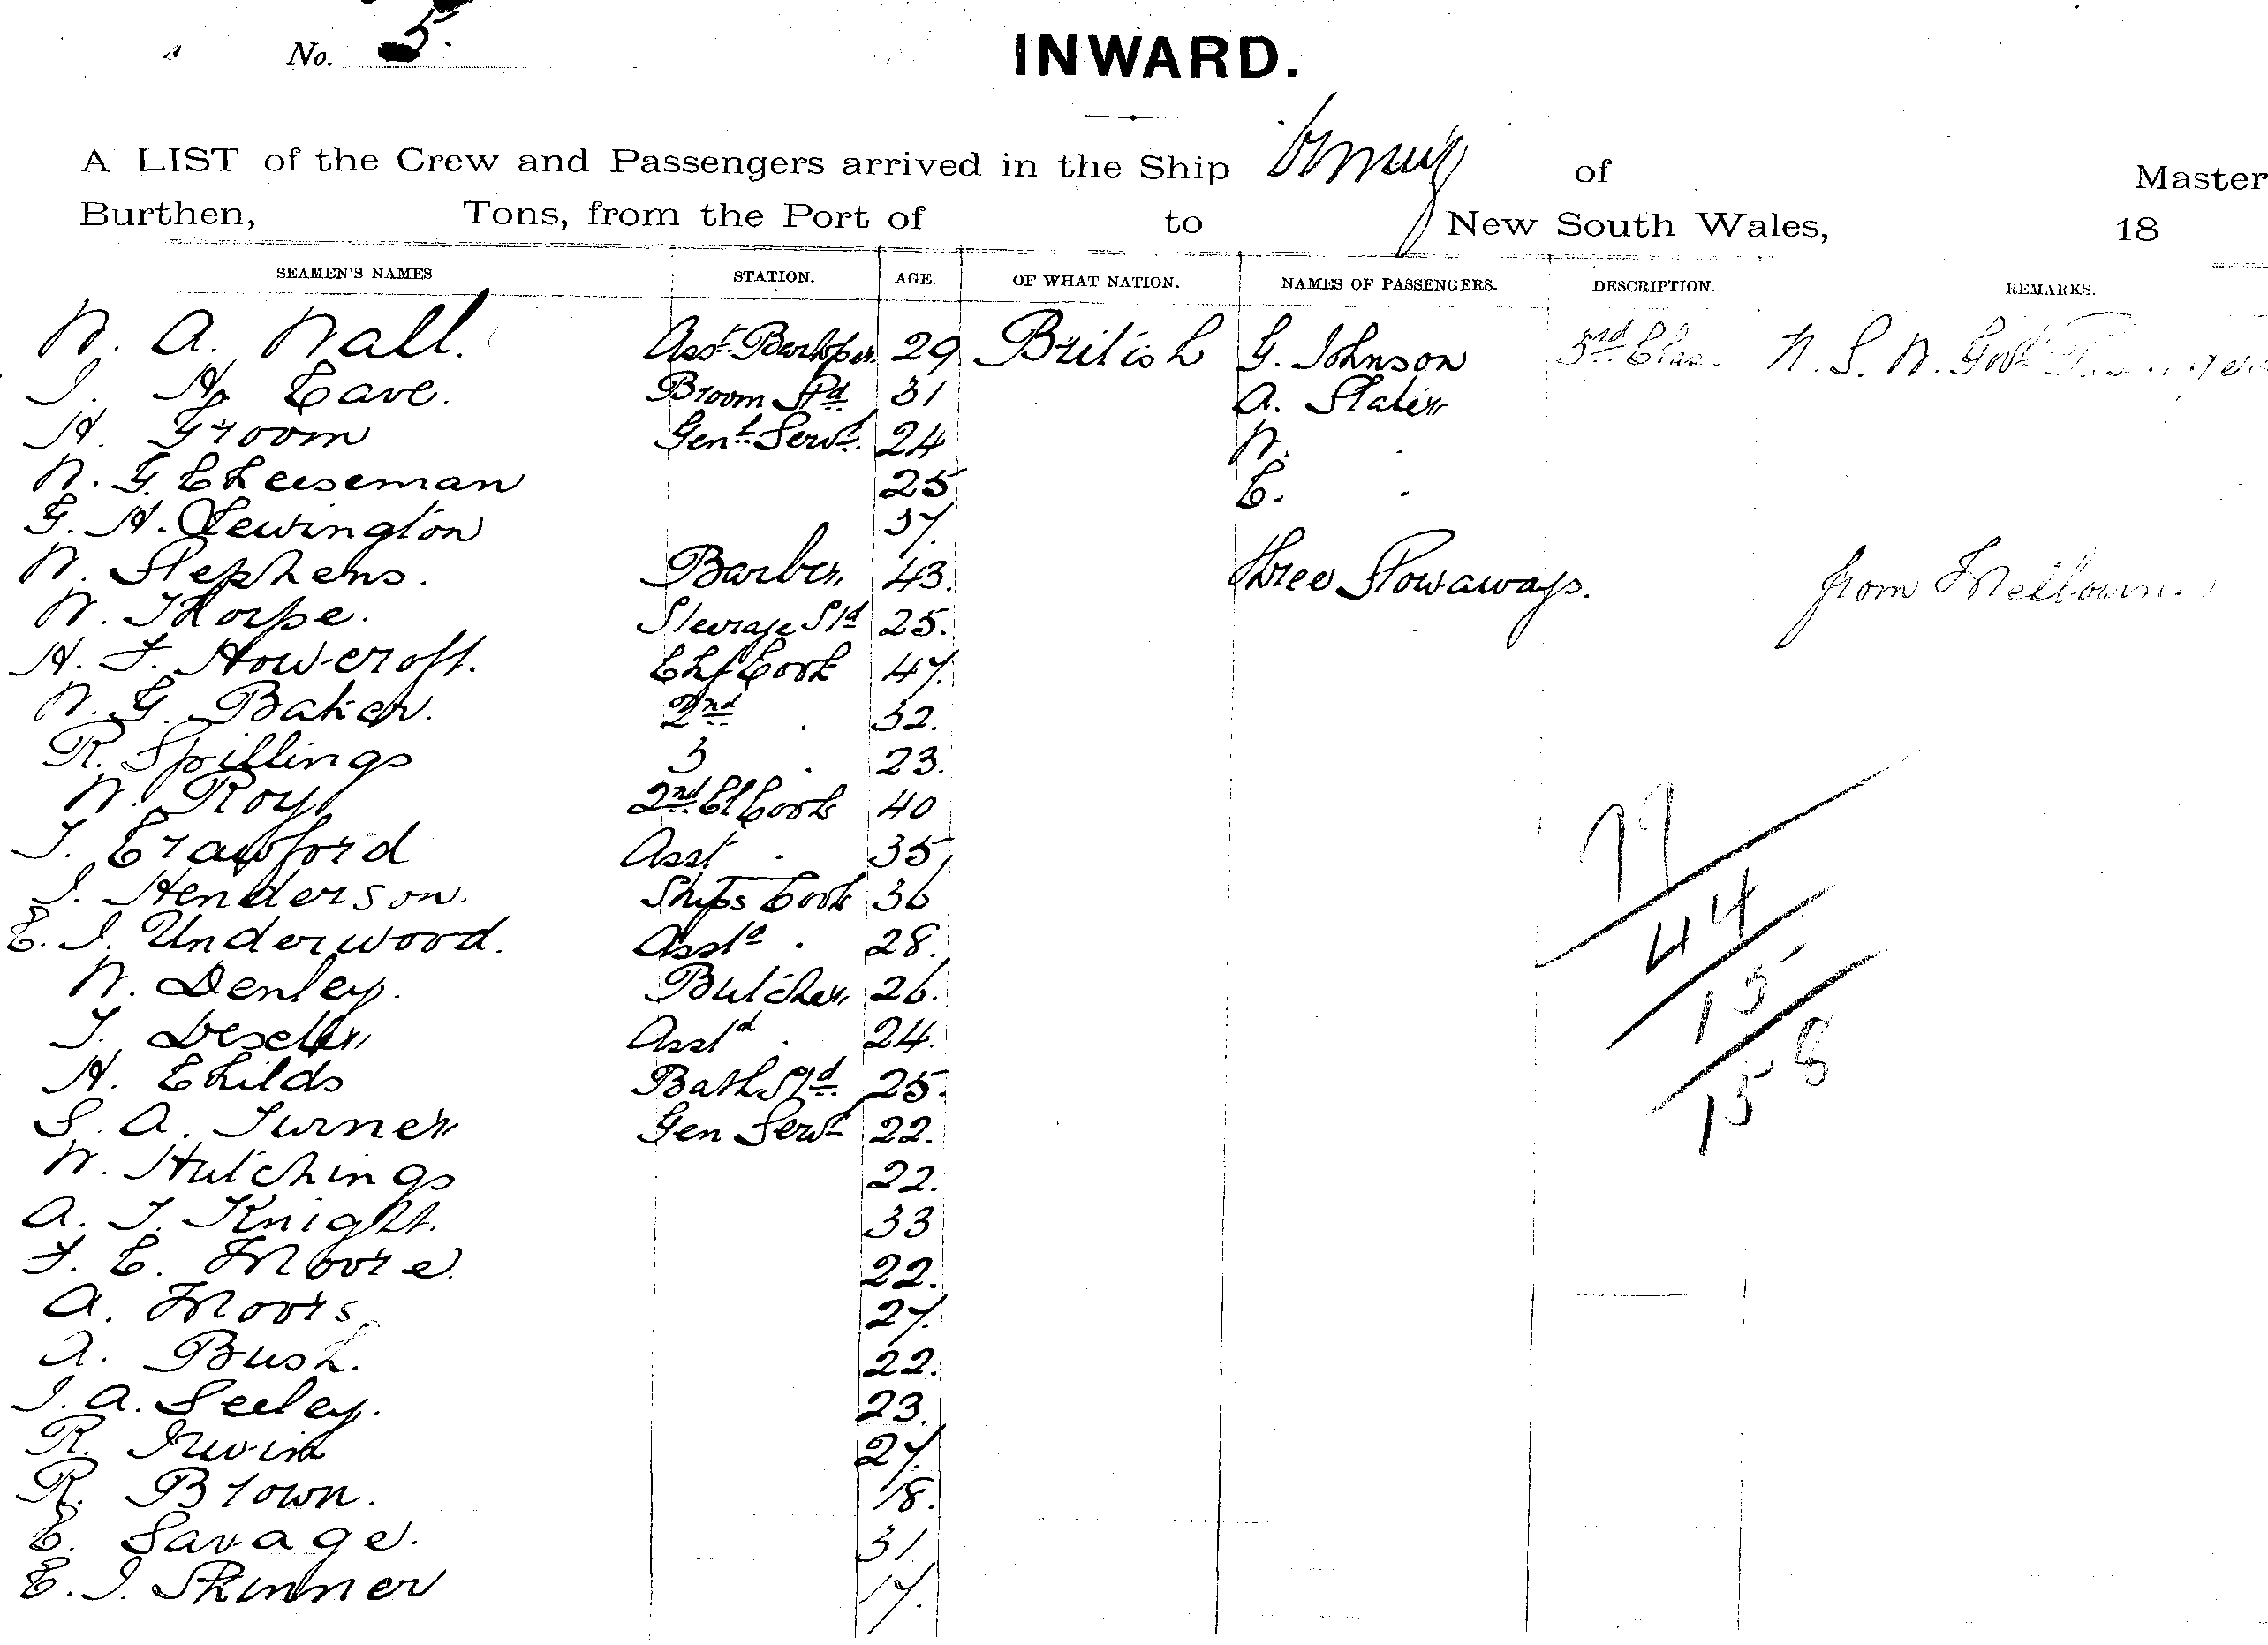 No. 5.
INWARD.
A LIST of the Crew and Passengers arrived in the Ship Ormuz of Master
Burthen, Tons, from the Port of to New South Wales, 18
SEAMEN'S NAMES STATION. AGE. OF WHAT NATION. NAMES OF PASSENGERS. DESCRIPTION. REMARKS.
W. A. Wall. Asst Barkper. 29 British G. Johnson 3rd Clas. N. S. W. Govt
J. H. Cave. Broom Std 31 A. Slater
H. Groom Genl Servt. 24 W. "
W. G. Cheeseman 25 C. "
G. H. Lewington 37.
W. Stephens. Barber 43. three Stowaways. from Melbourne
W. Thorpe. Steerage Std 25.
H. F. Howcroft. Chf Cook 47.
W. G. Baker. 2nd " 32.
R. Spillings 3 " 23.
W. Roy 2nd Cl Cook 40
T. Crawford Asst " 35 79
J. Henderson. Ships Cook 36 44
E. J. Underwood. Asst " 28.
W. Denley. Butcher 26. 15
T. Asst " 24. 158
H. Childs Bath Std 25.
S. A. Turner Gen Servt 22.
W. Hutchings 22.
A. T. Knight. 33
F. C. Moore 22.
A. Moors 27.
A. Bush. 22.
J. A. Seeley. 23.
R. Irwin 27.
R. Brown. 18.
C. Savage. 31
C. J. Skinner 17.